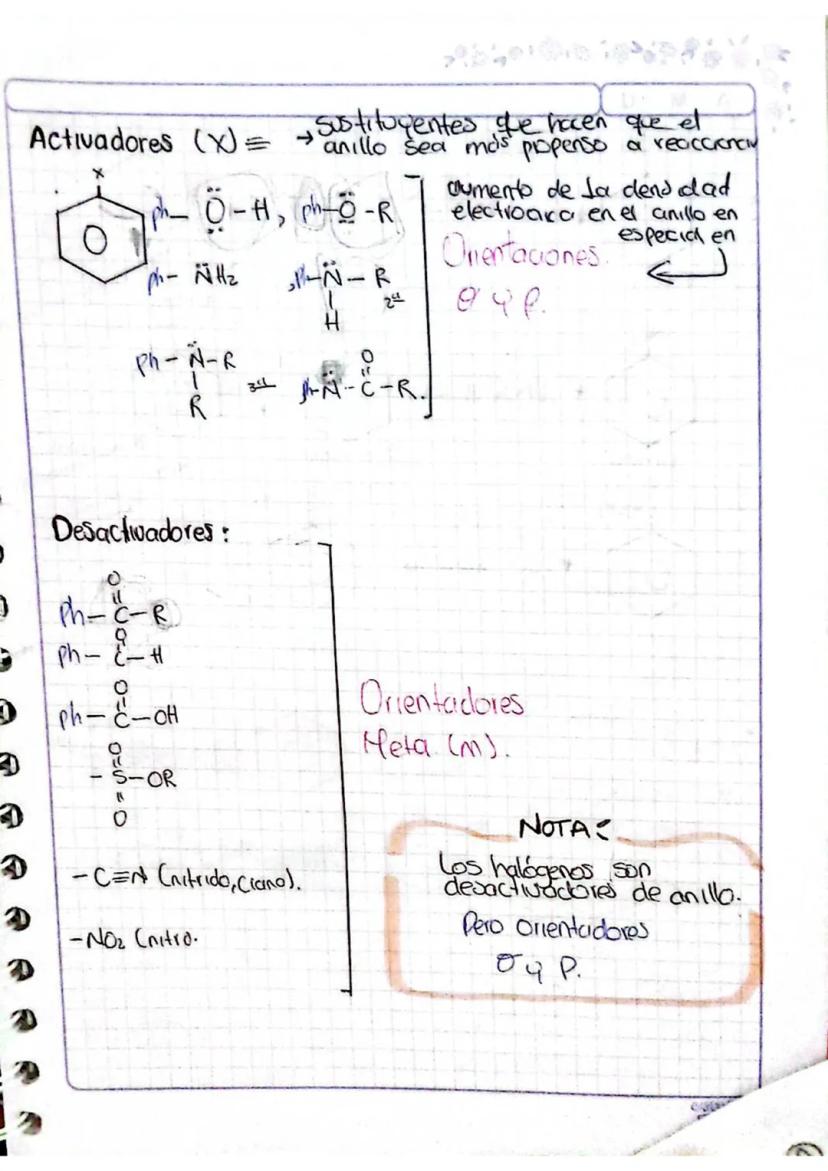 Activadores (X) ≡ → sustituyentes que hacen que el
anillo sea más propenso a reaccionar
X
ph – Ö – H, ph – Ö – R
ph – N̈H2 , ph – N̈ – R
H
2rio
ph – N̈ – R
R
3rio
ph – N̈ – C – R.
O
aumento de la densidad
electronica en el anillo en
especial en
Orientaciones.
O y P.
Desactivadores:
O
Ph – C – R
O
Ph – C – H
O
ph – C – OH
O
– S – OR
O
– C≡N (nitrido, Ciano).
– NO2 (nitro.
Orientadores
Meta (m).
NOTA:
Los halógenos son
desactivadores de anillo.
Pero orientadores
O y P.